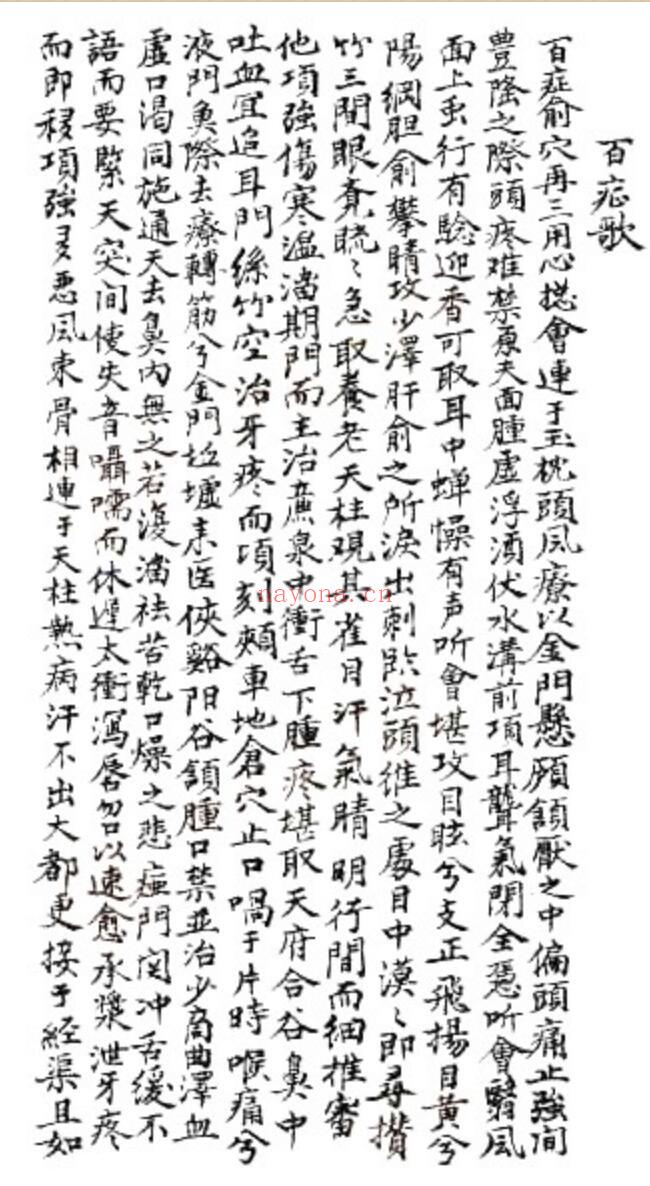 百症歌
百症俞穴再三用心揔會連于玉枕頭风療以金門懸顱頷厭之中偏頭痛止強间
豊隆之際頭疼难禁原夫面腫虚浮湏伏水溝前項耳聾氣閉全憑听會翳风
面上虫行有騐迎香可取耳中蝉懆有声听會堪攻目眩兮支正飛揚目黄兮
陽綱胆俞攀睛攻少澤肝俞之所淚出刺臨泣頭維之處目中漠〻即尋攢
竹三間眼𥆨䀮〻急取養老天柱观其雀目汗氣睛明行間而细推審
他項強傷寒温溜期門而主治廉泉中衝舌下腫疼堪取天府合谷鼻中
吐血宜追耳門絲竹空治牙疼而頃刻頰車地倉穴止口喎于片時喉痛兮
液門魚際去療轉筋兮金門坵墟来医俠谿阳谷頷腫口禁並治少商曲澤血
虚口渴同施通天去鼻内無之若復溜祛苦乾口燥之悲瘂門関冲舌缓不
語而要緊天突间使失音囁嚅而休遅太衝瀉唇喎以速愈承漿泄牙疼
而即移項強多恶风束骨相連于天柱热病汗不出大都更接于经渠且如
nayona.cn